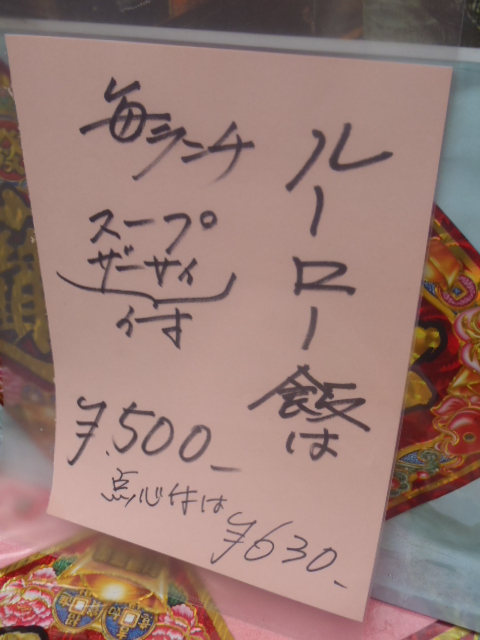 ルーロー飯は
毎ランチ
スープ
ザーサイ
付
¥500-
点心付は
¥630-